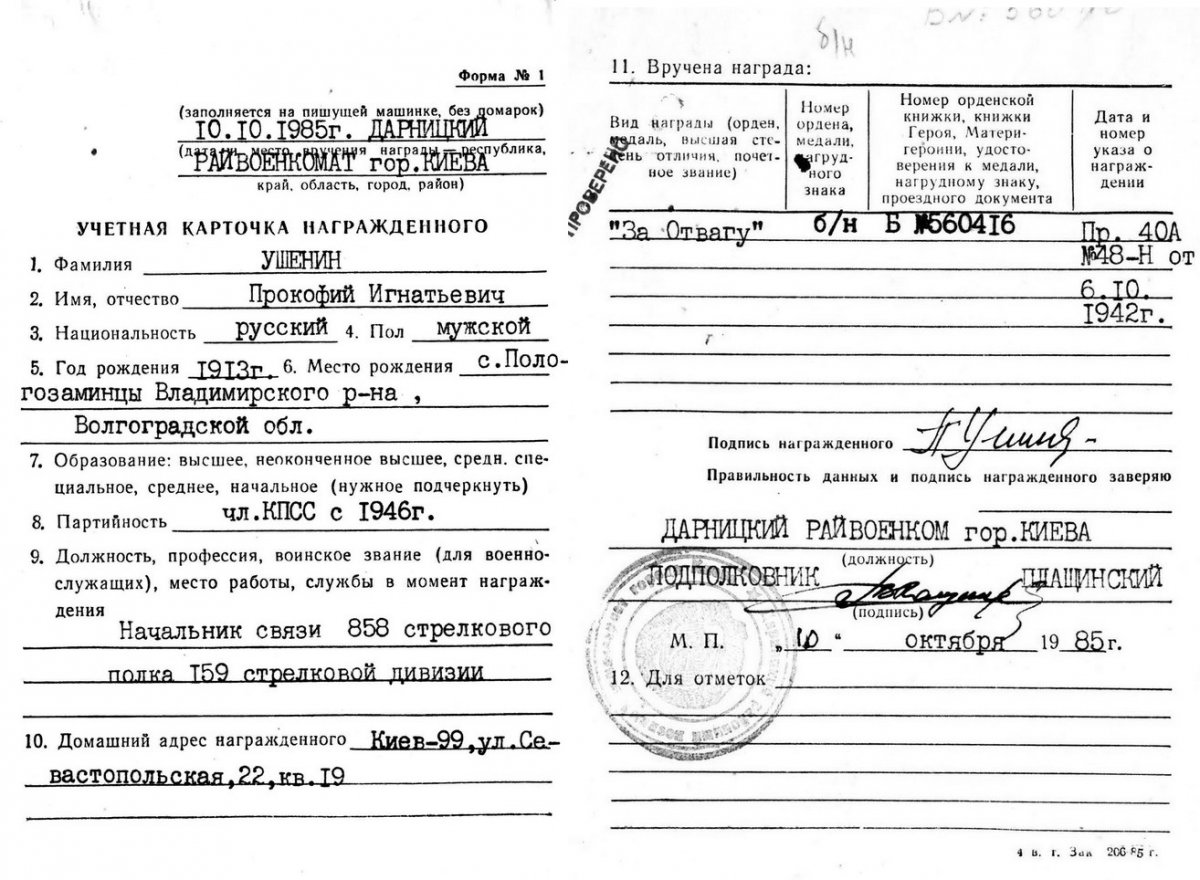 Форма № 1
(заполняется на пишущей машинке, без помарок)
10.10.1985г. ДАРНИЦКИЙ
(дата и место вручения награды — республика,
РАЙВОЕНКОМАТ гор.КИЕВА
край, область, город, район)
УЧЕТНАЯ КАРТОЧКА НАГРАЖДЕННОГО
1. Фамилия УШЕНИН
2. Имя, отчество Прокофий Игнатьевич
3. Национальность русский 4. Пол мужской
5. Год рождения 1913г. 6. Место рождения с.Поло-
гозаминцы Владимирского р-на ,
Волгоградской обл.
7. Образование: высшее, неоконченное высшее, средн. спе-
циальное, среднее, начальное (нужное подчеркнуть)
8. Партийность чл.КПСС с 1946г.
9. Должность, профессия, воинское звание (для военно-
служащих), место работы, службы в момент награж-
дения
Начальник связи 858 стрелкового
полка 159 стрелковой дивизии
10. Домашний адрес награжденного Киев-99,ул.Се-
вастопольская,22,кв.19
б/н
11. Вручена награда:
Вид награды (орден, медаль, высшая сте-
пень отличия, почет-
ное звание)
ПРОВЕРЕНО
Номер
ордена,
медали,
нагруд-
ного
знака
Номер орденской
книжки, книжки
Героя, Матери-
героини, удосто-
верения к медали,
нагрудному знаку,
проездного документа
Дата и
номер
указа о
награж-
дении
"За Отвагу" б/н Б №560416 Пр. 40А
№48-Н от
6.10.
1942г.
Подпись награжденного
Правильность данных и подпись награжденного заверяю
ДАРНИЦКИЙ РАЙВОЕНКОМ гор.КИЕВА
(должность)
ПОДПОЛКОВНИК ПЛАЩИНСКИЙ
(подпись)
М. П. „10" октября 1985г.
12. Для отметок
4 в. т. Зак 206-85 г.